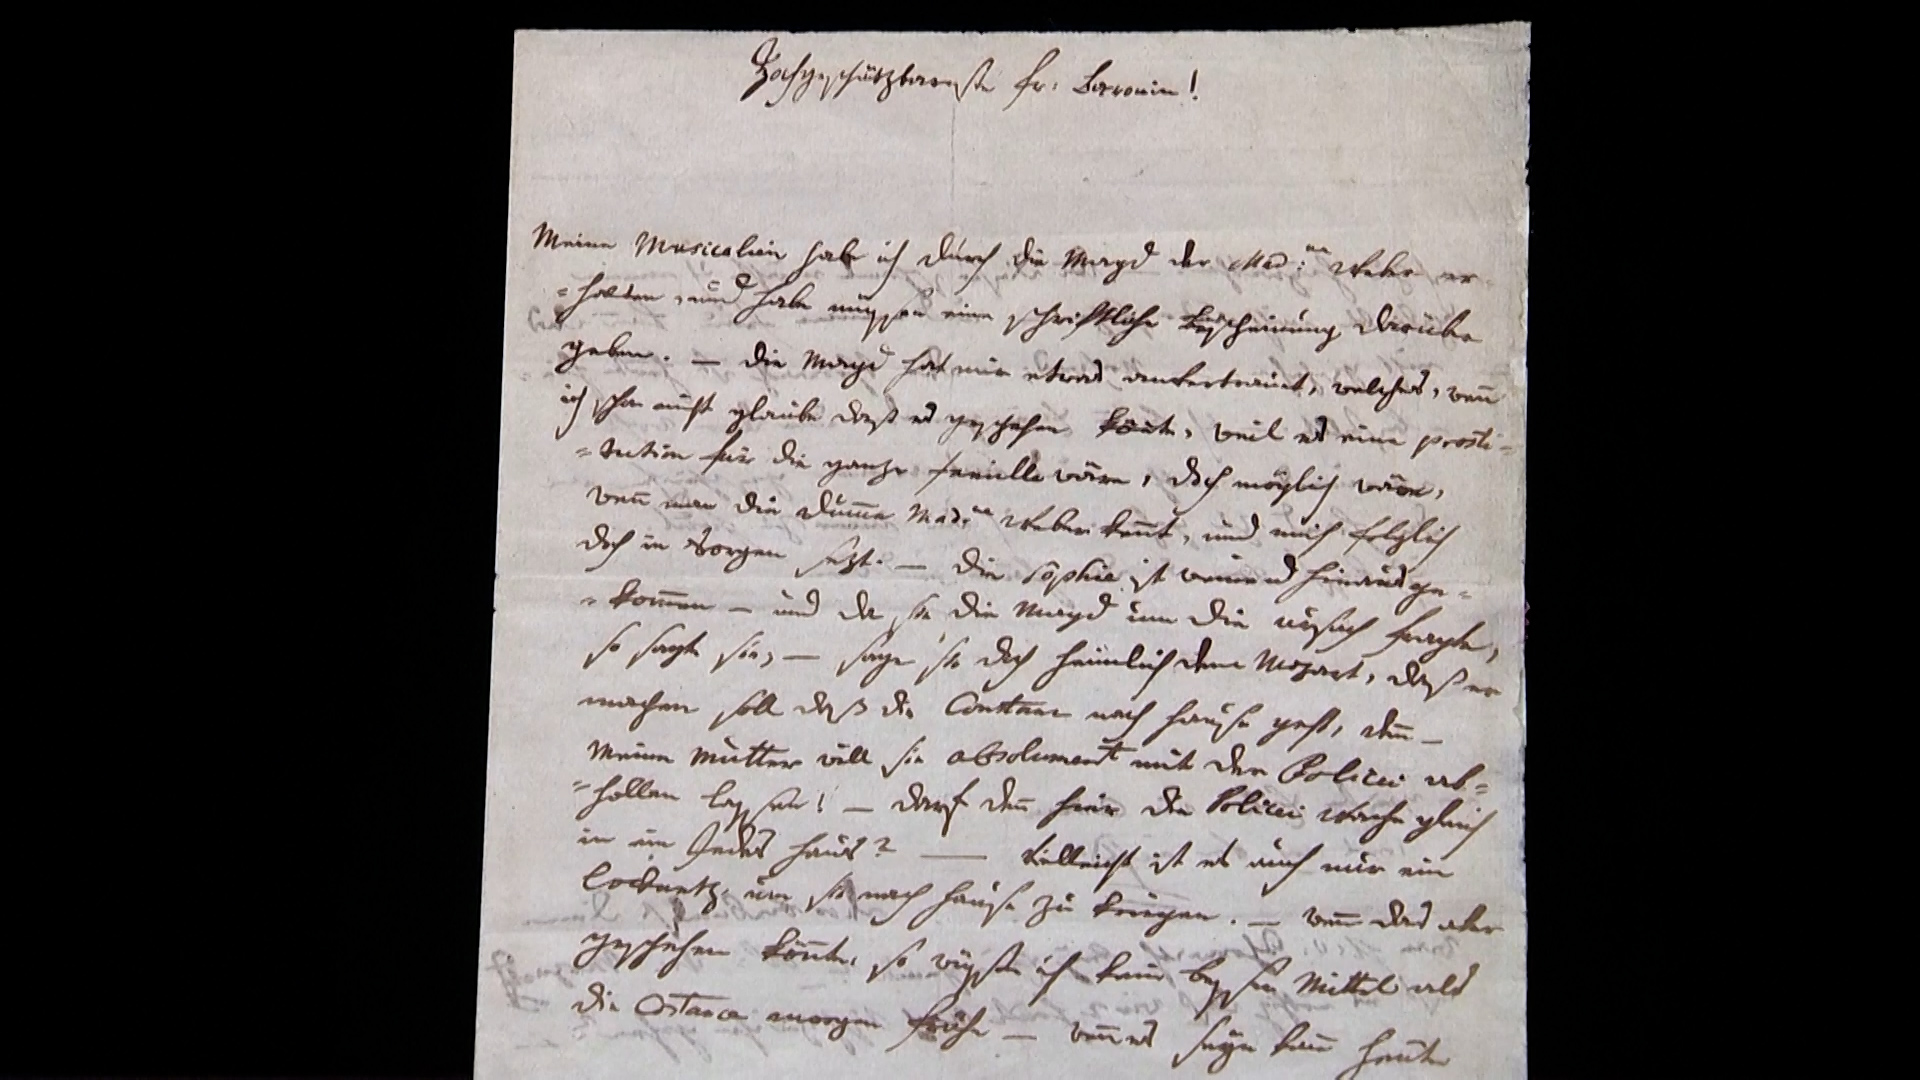 Hochgeschätzbareste fr: Baronin!
Meine Musicalien habe ich durch die Magd der Mad:me Weber er-
=halten, und habe müssen eine schriftliche Bescheinung darüber
geben. — die Magd hat mir etwas anvertrauet, welches, wenn
ich schon nicht glaube daß es geschehen könnte, weil es eine prosti=
=tution für die ganze familie wäre, doch möglich wäre,
wenn man die dumme Mad:me Weber kennt, und mich folglich
doch in Sorgen setzt. — die Sophie ist weinend hinausge=
=kommen — und da sie die Magd um die ursach fragte,
so sagte sie, — sage sie doch heimlich dem Mozart, daß er
machen soll daß die Constanz nach hause geht, denn —
meine Mutter will sie absolument mit der Policei ab=
=hollen lassen! — darf denn hier die Policei Wache gleich
in ein Jedes haus? — Vielleicht ist es auch nur ein
locknetz um sie nach hause zu kriegen. — wenn das aber
geschehen könnte, so wüsste ich kein bessers Mittel als
die Costance morgen frühe — wenn es seyn kann heute